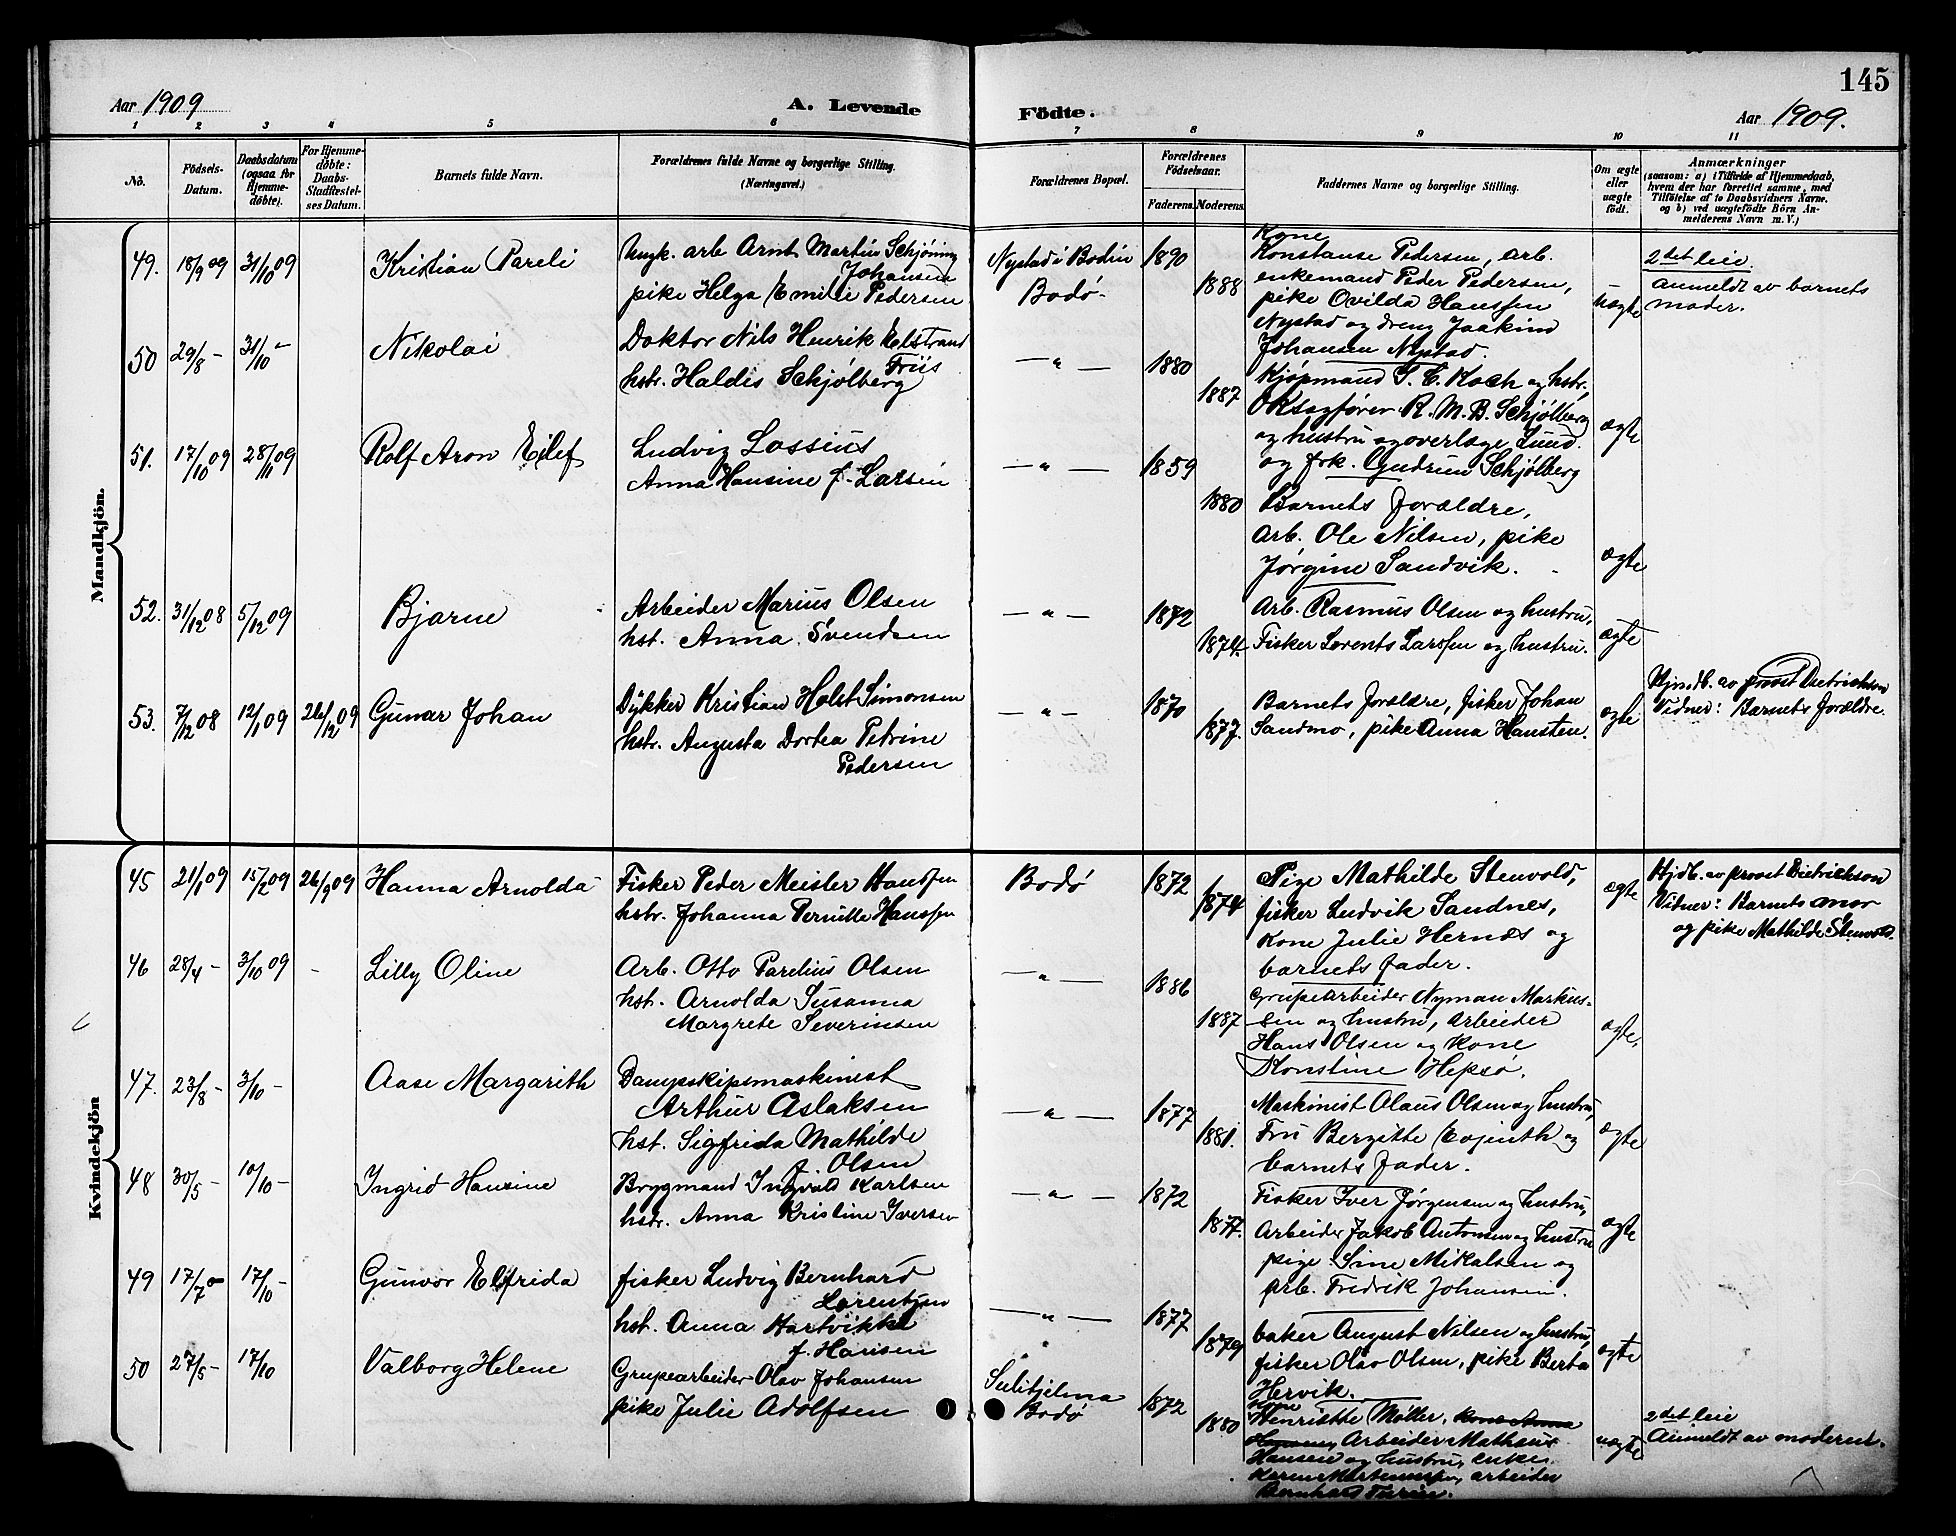 145
Aar 1909
A. Levende
Födte.
Aar 1909.
1 2 3 4 5 6 7 8 9 10 11
No.
Födsels-Datum.
Daabsdatum (ogsaa for Hjemme-döbte).
For Hjemme-döbte: Daabs-Stadfæstel-ses Datum.
Barnets fulde Navn.
Forældrenes fulde Navne og borgerlige Stilling. (Næringsvei.)
Forældrenes Bopæl.
Forældrenes Födselsaar.
Faderens. Moderens.
Faddernes Navne og borgerlige Stilling.
Om ægte eller uægte födt.
Anmærkninger
(saasom: a) i Tilfælde af Hjemmedaab,
hvem der har forrettet samme, med
Tilföielse af to Daabsvidners Navne,
og b) ved uægtefödte Börn An-
melderens Navn m. V.)
Mandkjön.
49. 18/9 09 31/10 09 Kristian Pareli
Ungk. arb Arnt Martin Schjøning
Johansen
pike Helga Emilie Pedersen
Nystad i Bodin
Bodø
1890
1888
Kone
Konstanse Pedersen, arb.
enkemand Peder Pedersen,
pike Ovilda Hanssen
Nystad og dreng Joakim
Johansen Nystad.
uægte
2det leie.
anmeldt av barnets
moder.
50 29/8 – 31/10 – Nikolai
Doktor Nils Henrik Elstrand
Friis
hstr. Haldis Schjølberg
— " —
1880
1887
Kjøpmand J. E. Koch og hstr.
O.R.sagfører R. M. B. Schjølberg
og hustru og overlæge Lund.
og frk. Gudrun Schjølberg
ægte
51. 17/10 09 28/11 09 Rolf Aron Eilef
Ludvig Lossius
Anna Hansine f. Larsen
— " —
1859
1880
Barnets forældre,
Arb. Ole Nilsen, pike
Jørgine Sandvik.
ægte
52. 31/12 08 5/12 09 Bjarne
Arbeider Marius Olsen
hst. Anna Svendsen
— " —
1872
1874.
Arb. Rasmus Olsen og hustru,
Fisker Lorents Larssen og hustru.
ægte
53. 7/12 08 12/1 09 26/12 09 Gunar Johan
Dykker Kristian Holst Simonsen
hstr. Augusta Dortea Petrine
Pedersen
— " —
1870
1877.
Barnets forældre, fisker Johan
Sandmo, pike Anna Hansten.
ægte
Hjmdb. av provst Dietrichson
Vidner: Barnets forældre.
Kvindekjön
45 21/1 09 15/2 09 26/9 09 Hanna Arnolda
Fisker Peder Meisler Hanssen
hstr. Johanna Pernille Hanssen
Bodø
1872
1874
Pige Mathilde Stenvold,
fisker Ludvik Sandnes,
kone Julie Hernes og
barnets fader.
ægte
Hjdb. av provst Dietrichson
Vidner: Barnets mor
og pike Mathilde Stenvold.
46 28/4 – 3/10 09 - Lilly Oline
Arb. Otto Parelius Olsen
hst. Arnolda Susanna
Margrete Severinsen
— " —
1886
1887
Grupearbeider Nyman Markus-
sen og hustru, arbeider
Hans Olsen og kone
Konstine Hepsø.
ægte.
47. 23/8 – 3/10 – Aase Margarith
Dampskipsmaskinist
Arthur Aslaksen
hst. Sigfrida Mathilde
f. Olsen
— " —
1877
1881.
Maskinist Olaus Olsen og hustru,
Fru Bergitte Evjenth og
barnets fader.
ægte
48 30/5 – 10/10 – Ingrid Hansine
Brygmand Ingvald Karlsen
hstr. Anna Kristine Iversen
— " —
1872
1877.
Fisker Iver Jørgensen og hustru,
Arbeider Jakob Antonsen og hustru
pige Sine Mikalsen og
arb. Fredrik Johansen.
ægte
49 17/7 – 17/10 – Gunvor Elfrida
fisker Ludvig Bernhard
Lorentsen
hst. Anna Hartvikke
f. Hansen
— " —
1877
1879
baker August Nilsen og hustru,
fisker Olav Olsen, pike Berta
Hervik.
ægte
50 27/5 – 17/10 Valborg Helene
Grupearbeider Olav Johansen
pike Julie Adolfsen
Sulitjelma
Bodø
1872
1880
kone
Henriette Møller, kone Anna
Hansen, Arbeider Mathæus
Hansen og hustru, enke
Karen Martinussen, arbeider
Bernhard
uægte
2det leie
Anmeldt av moderen.